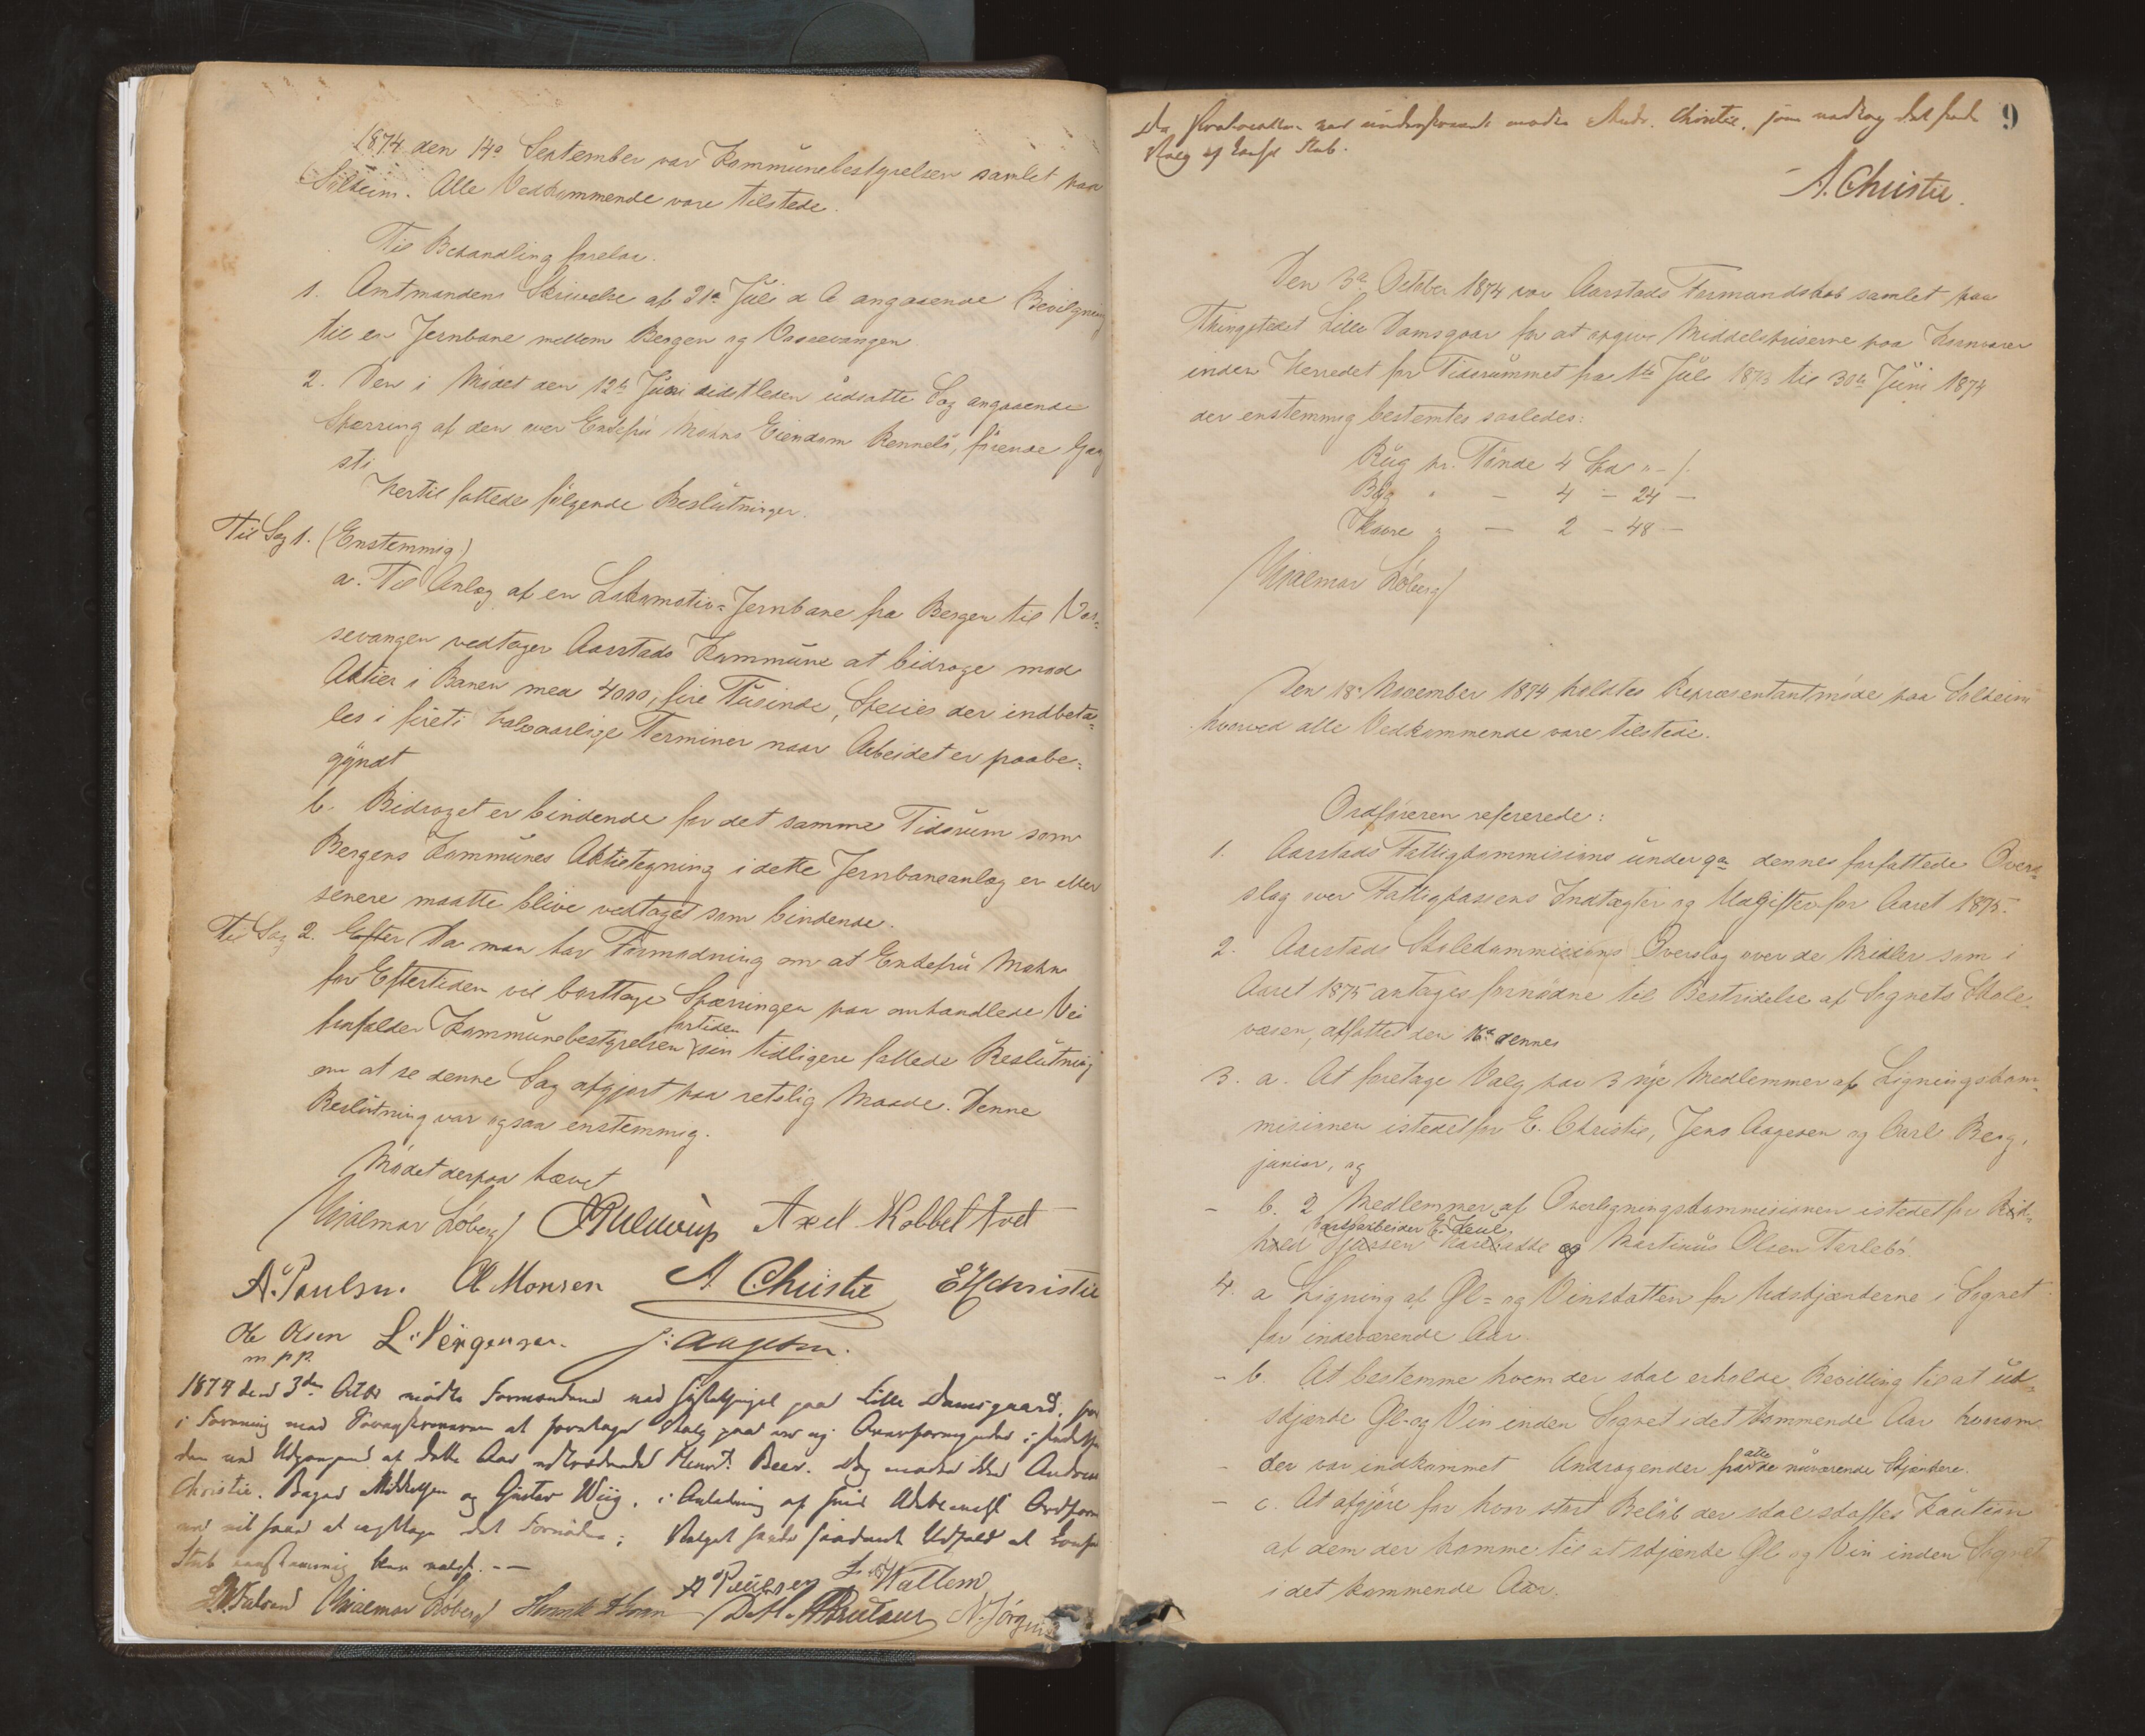 1874 den 14de September var Kommunebestyrelsen samlet paa
Solheim. Alle Vedkommende vare tilstede.
Til Behandling forelaa.
1. Amtmandens Skrivelse af 21de Juli d A angaaende Bevilgning
til en Jernbane mellem Bergen og Vossevangen
2. Den i Mødet den 12te Juni sidstleden udsatte Sag angaaende
Spærring af den over Enkefru Mohns Eiendom Kennelö, förende Gang
sti
Hertil fattedes følgende Beslutninger.
Til Sag 1. (Enstemmig)
a. Til Anlæg af en Lokomotiv=Jernbane fra Bergen til Vos=
sevangen vedtager Aarstads Kommune at bidrage mod
Aktier i Banen med 4000, fire Tusinde, Species der indbeta=
les i fireti halvaarlige Terminer naar Arbeidet er paabe=
gyndt
b. Bidraget er bindende for det samme Tidsrum som
Bergens Kommunes Aktietegning i dette Jernbaneanlæg er eller
senere maatte blive vedtaget som bindende.
Til Sag 2. Efter Da man har Formodning om at Enkefru Mohn
for Eftertiden vil borttage Spærringen paa omhandlede Vei
frafalder Kommunebestyrelsen fortiden sin tidligere fattede Beslutning
om at se denne Sag afgjort paa retslig Maade. Denne
Beslutning var ogsaa enstemmig.
Mödet derpaa hævet
Hjalmar Löberg Axel Kobbeltvet
A. Paulsen. Ol Monsen A. Christie E H Christie
Ole Olsen L. Jörgensen. J. Aagesen.
m p p.
1874 den 3die Octbr mödte Formændene ved paa Lille Damsgaard, for
i Forening med at foretage Valg paa en ny Overformynder i stedetfor
den ved Udgangen af dette Aar udtrædende Beer. Dog mødte ikke Andreas
Christie. Mikkelsen og Gustav Wiig. i Anledning af
Valget saadant Udfald at
Stub eenstemmig blev valgt. —
A Paulsen Wallem
Hjalmar Löberg N. Jörgensen
9
Da Protocollen var underskrevet mødte Andr. Christie, som vedtog det skede
Valg af Stub.
A. Christie.
Den 3de October 1874 var Aarstads Formandskab samlet paa
Thingstedet Lille Damsgaar for at opgive Middelpriserne paa Kornvarer
inden Herredet for Tidsrummet fra 1ste Juli 1873 til 30te Juni 1874
der enstemmig bestemtes saaledes:
Rug pr. Tönde 4 Spd " - /.
Byg " — 4 — 24 —
Havre " — 2 — 48 —
Hjalmar Löberg
Den 18de November 1874 holdtes Repræsentantmöde paa Solheim
hvorved alle Vedkommende vare tilstede.
Ordföreren refererede:
1. Aarstads Fattigkommisions under 9de dennes forfattede Over=
slag over Fattigkassens Indtægter og Udgifter for Aaret 1875.
2. Aarstads Skolekommisions Overslag over de Midler som i
Aaret 1875 antages fornødne til Bestridelse af Sognets Skole=
væsen, affattet den 16de dennes
3. a. At foretage Valg paa 3 nye Medlemmer af Ligningskom=
misionen istedetfor E. Christie, Jens Aagesen og Carl Berg,
junior, og
- b. 2 Medlemmer af Overligningskommisionen istedetfor
og Martinus Olsen Tarlebö.
4. a Ligning af Øl= og Vinskatten for Udskjænkerne i Sognet
for indeværende Aar.
- b. At bestemme hvem der skal erholde Bevilling til at ud=
skjænke Øl- og Vin inden Sognet i det kommende Aar hvorom
- der var indkommet Andragender fra alle de nuværende Skjænkere.
- c. At afgjöre for hvor stort Belöb der skal skaffes Kaution
af dem der komme til at skjænke Øl og Vin inden Sognet
i det kommende Aar.